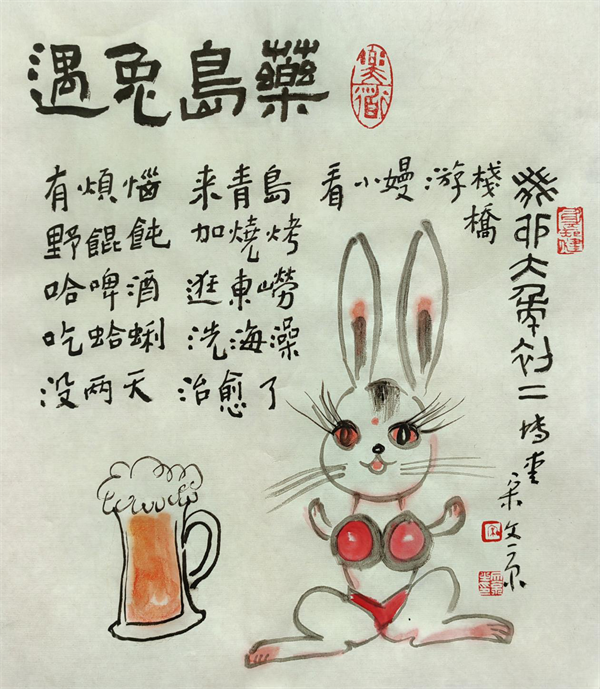 遇兔島藥
有煩惱 来青島 看小嫚 游棧橋
野餛飩 加燒烤
哈啤酒 逛東嶗
吃蛤蜊 洗海澡
没两天 治愈了
癸卯大年初二
宋文京